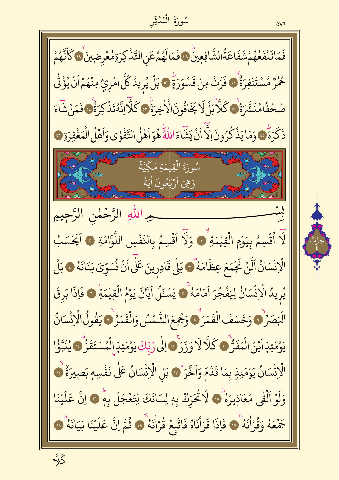 سُورَةُ الْمُدَّثِّرِ
٥٧٦
فَمَا تَنْفَعُهُمْ شَفَاعَةُ الشَّافِعِينَ ﴿٤٨﴾ فَمَا لَهُمْ عَنِ التَّذْكِرَةِ مُعْرِضِينَ ﴿٤٩﴾ كَأَنَّهُمْ
حُمُرٌ مُسْتَنْفِرَةٌ ﴿٥٠﴾ فَرَّتْ مِنْ قَسْوَرَةٍ ﴿٥١﴾ بَلْ يُرِيدُ كُلُّ امْرِئٍ مِنْهُمْ أَنْ يُؤْتٰى
صُحُفًا مُنَشَّرَةً ﴿٥٢﴾ كَلَّا بَلْ لَا يَخَافُونَ الْاٰخِرَةَ ﴿٥٣﴾ كَلَّا إِنَّهُ تَذْكِرَةٌ ﴿٥٤﴾ فَمَنْ شَاءَ
ذَكَرَهُ ﴿٥٥﴾ وَمَا يَذْكُرُونَ إِلَّا أَنْ يَشَاءَ اللهُ هُوَ أَهْلُ التَّقْوٰى وَأَهْلُ الْمَغْفِرَةِ ﴿٥٦﴾
سُورَةُ الْقِيٰمَةِ مَكِّيَّةٌ
وَهِيَ أَرْبَعُونَ اٰيَةً
بِسْمِ اللهِ الرَّحْمٰنِ الرَّحِيمِ
لَا أُقْسِمُ بِيَوْمِ الْقِيٰمَةِ ﴿١﴾ وَلَا أُقْسِمُ بِالنَّفْسِ اللَّوَّامَةِ ﴿٢﴾ أَيَحْسَبُ
الْإِنْسَانُ أَلَّنْ نَجْمَعَ عِظَامَهُ ﴿٣﴾ بَلٰى قَادِرِينَ عَلٰى أَنْ نُسَوِّيَ بَنَانَهُ ﴿٤﴾ بَلْ
يُرِيدُ الْإِنْسَانُ لِيَفْجُرَ أَمَامَهُ ﴿٥﴾ يَسْئَلُ أَيَّانَ يَوْمُ الْقِيٰمَةِ ﴿٦﴾ فَإِذَا بَرِقَ
الْبَصَرُ ﴿٧﴾ وَخَسَفَ الْقَمَرُ ﴿٨﴾ وَجُمِعَ الشَّمْسُ وَالْقَمَرُ ﴿٩﴾ يَقُولُ الْإِنْسَانُ
يَوْمَئِذٍ أَيْنَ الْمَفَرُّ ﴿١٠﴾ كَلَّا لَا وَزَرَ ﴿١١﴾ إِلٰى رَبِّكَ يَوْمَئِذٍ الْمُسْتَقَرُّ ﴿١٢﴾ يُنَبَّؤُا
الْإِنْسَانُ يَوْمَئِذٍ بِمَا قَدَّمَ وَأَخَّرَ ﴿١٣﴾ بَلِ الْإِنْسَانُ عَلٰى نَفْسِهِ بَصِيرَةٌ ﴿١٤﴾
وَلَوْ أَلْقٰى مَعَاذِيرَهُ ﴿١٥﴾ لَا تُحَرِّكْ بِهِ لِسَانَكَ لِتَعْجَلَ بِهِ ﴿١٦﴾ إِنَّ عَلَيْنَا
جَمْعَهُ وَقُرْاٰنَهُ ﴿١٧﴾ فَإِذَا قَرَأْنَاهُ فَاتَّبِعْ قُرْاٰنَهُ ﴿١٨﴾ ثُمَّ إِنَّ عَلَيْنَا بَيَانَهُ ﴿١٩﴾
كَلَّا